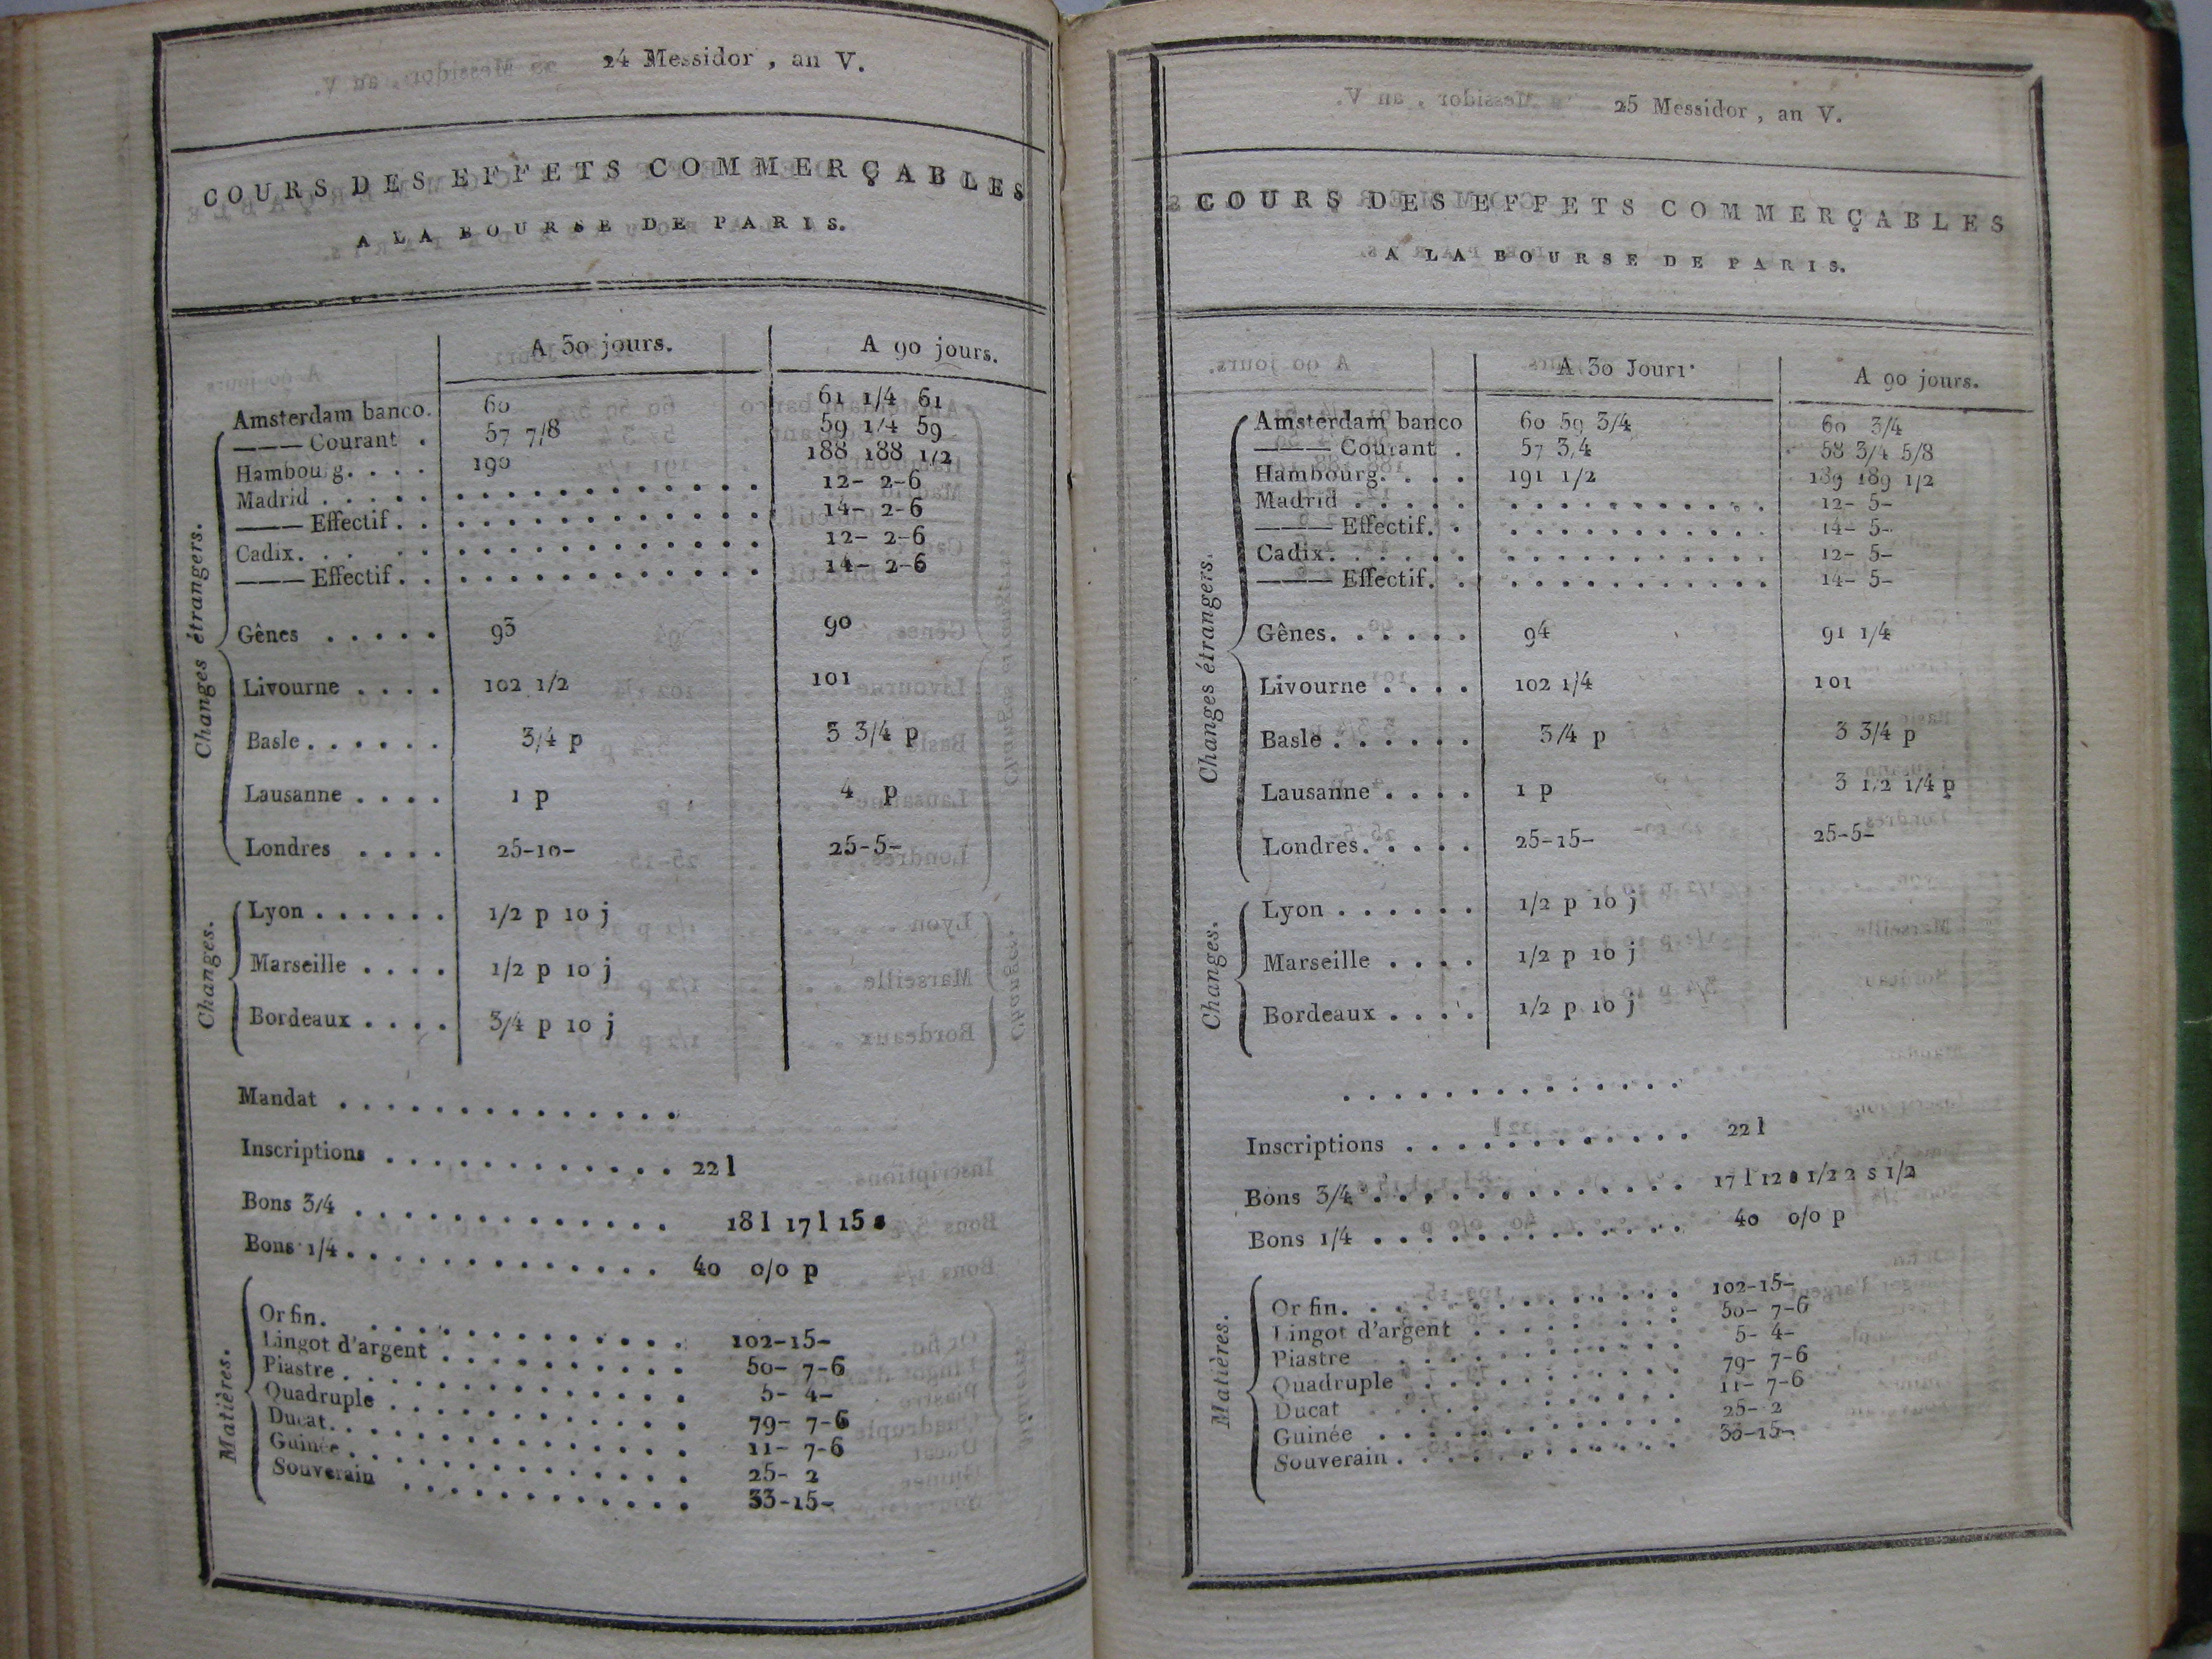 24 Messidor, an V.
COURS DES EFFETS COMMERÇABLES
A LA BOURSE DE PARIS.
A 30 jours. A 90 jours.
Changes étrangers.
Amsterdam banco. 60 61 1/4 61
——— Courant . 57 7/8 59 1/4 59
Hambourg. . . . 190 188 188 1/2
Madrid . . . . . . . . . . . . . . . . 12- 2-6
——— Effectif . . . . . . . . . . . . . . 14- 2-6
Cadix. . . . . . . . . . . . . . . . . 12- 2-6
——— Effectif . . . . . . . . . . . . . . 14- 2-6
Gênes . . . . . 93 90
Livourne . . . . 102 1/2 101
Basle . . . . . . 3/4 p 3 3/4 p
Lausanne . . . . 1 p 4 p
Londres . . . . 25-10- 25-5-
Changes.
Lyon . . . . . . 1/2 p 10 j
Marseille . . . . 1/2 p 10 j
Bordeaux . . . . 3/4 p 10 j
Mandat . . . . . . . . . . . . . .
Inscriptions . . . . . . . . . . . . 22 l
Bons 3/4 . . . . . . . . . . . . . 18 l 17 l 15 s
Bons 1/4 . . . . . . . . . . . . . 40 0/0 p
Matières.
Or fin. . . . . . . . . . . . . . 102-15-
Lingot d'argent . . . . . . . . . . 50- 7-6
Piastre . . . . . . . . . . . . . . 5- 4-
Quadruple . . . . . . . . . . . . 79- 7-6
Ducat. . . . . . . . . . . . . . . 11- 7-6
Guinée . . . . . . . . . . . . . . 25- 2
Souverain . . . . . . . . . . . . 33-15-
25 Messidor, an V.
COURS DES EFFETS COMMERÇABLES
A LA BOURSE DE PARIS.
A 30 Jours A 90 jours.
Changes étrangers.
Amsterdam banco 60 59 3/4 60 3/4
——— Courant . 57 3/4 58 3/4 5/8
Hambourg. . . . 191 1/2 189 189 1/2
Madrid . . . . . . . . . . . . . . . 12- 5-
——— Effectif. . . . . . . . . . . . . 14- 5-
Cadix. . . . . . . . . . . . . . . . 12- 5-
——— Effectif. . . . . . . . . . . . . 14- 5-
Gênes. . . . . . 94 91 1/4
Livourne . . . . 102 1/4 101
Basle . . . . . . 3/4 p 3 3/4 p
Lausanne . . . . 1 p 3 1/2 1/4 p
Londres. . . . . 25-15- 25-5-
Changes.
Lyon . . . . . . 1/2 p 10 j
Marseille . . . . 1/2 p 10 j
Bordeaux . . . . 1/2 p 10 j
. . . . . . . . . . . . . .
Inscriptions . . . . . . . . . . . . 22 l
Bons 3/4 . . . . . . . . . . . . . 17 l 12 s 1/2 2 s 1/2
Bons 1/4 . . . . . . . . . . . . . 40 0/0 p
Matières.
Or fin. . . . . . . . . . . . . . 102-15-
Lingot d'argent . . . . . . . . . 50- 7-6
Piastre . . . . . . . . . . . . 5- 4-
Quadruple . . . . . . . . . . . 79- 7-6
Ducat . . . . . . . . . . . . 11- 7-6
Guinée . . . . . . . . . . . . 25- 2
Souverain . . . . . . . . . . . 33-15-